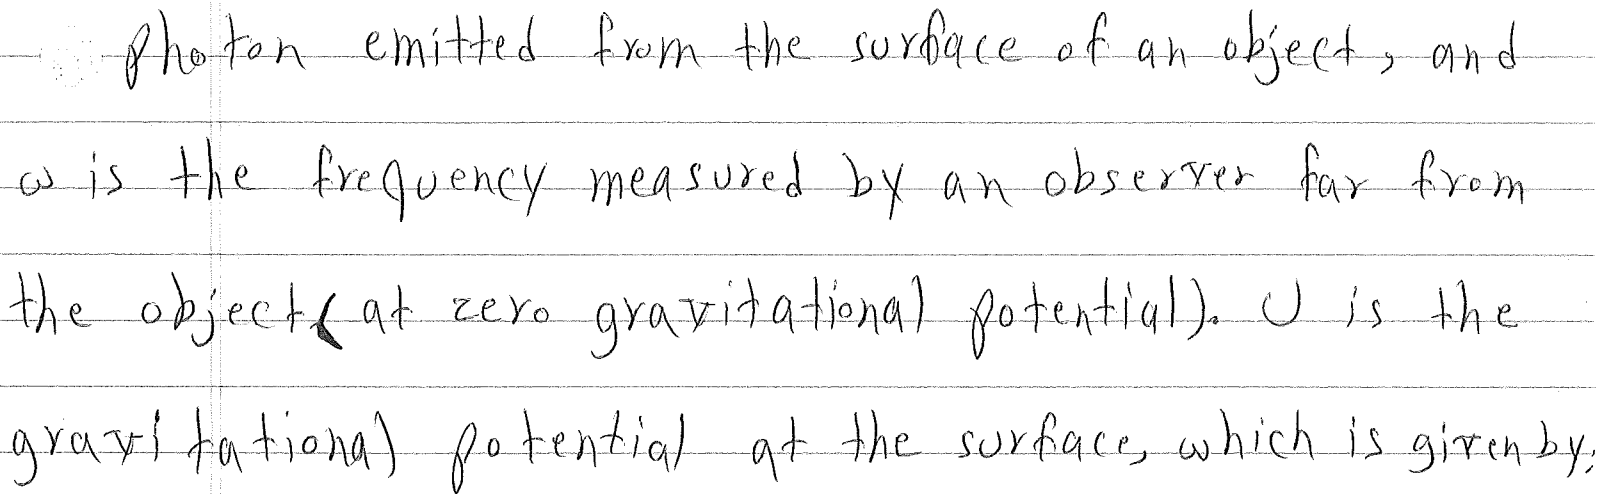 photon emitted from the surface of an object, and
ω is the frequency measured by an observer far from
the object (at zero gravitational potential). U is the
gravitational potential at the surface, which is given by: